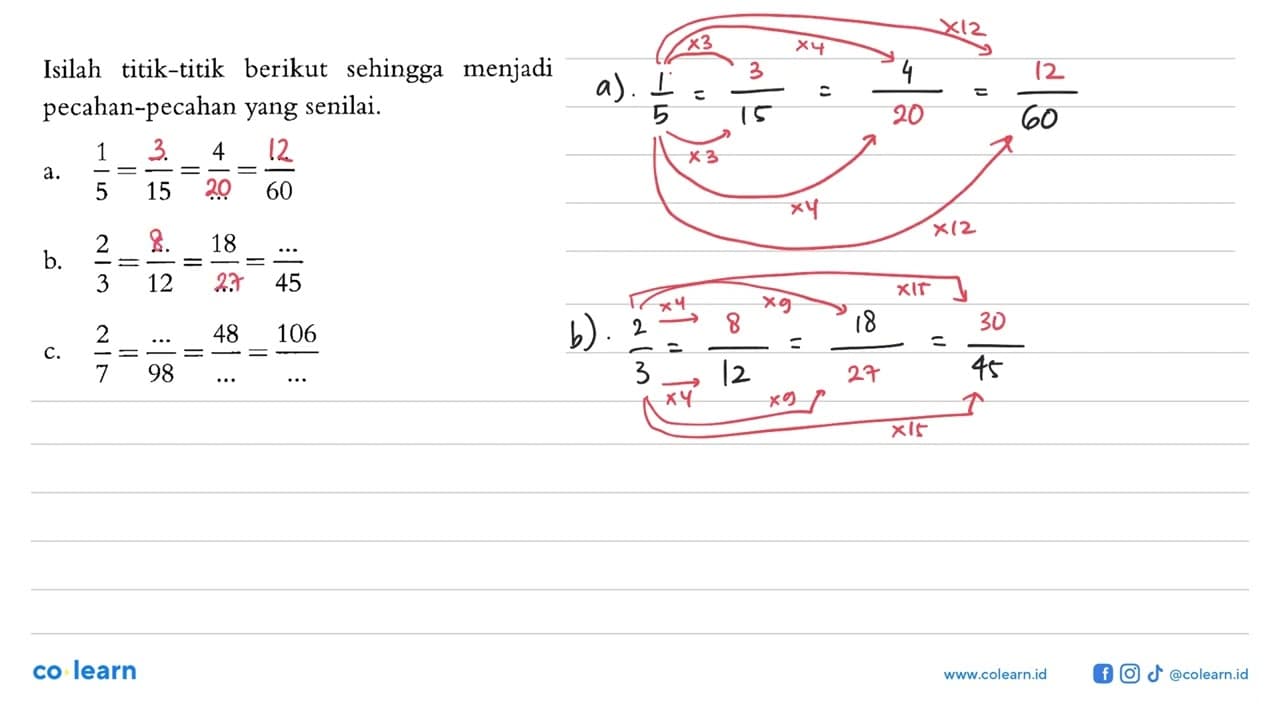 Isilah titik-titik berikut sehingga menjadi
pecahan-pecahan yang senilai.
a. 1/5 = 3/15 = 4/20 = 12/60
b. 2/3 = 8/12 = 18/27 = .../45
c. 2/7 = .../98 = 48/... = 106/...
x3 x4 x12
a). 1/5 = 3/15 = 4/20 = 12/60
x3
x4
x12
x4 x9 x15
b). 2/3 = 8/12 = 18/27 = 30/45
x4 x9
x15
co learn
www.colearn.id
@colearn.id